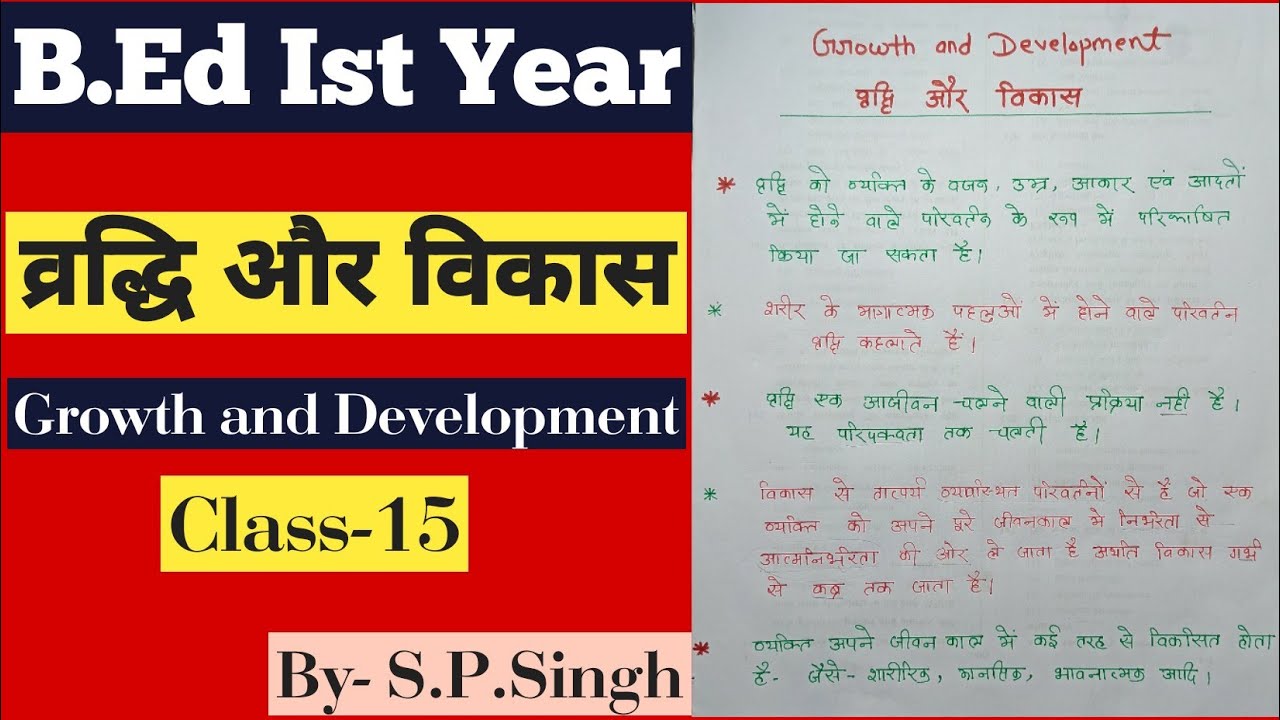 B.Ed Ist Year
व्रद्धि और विकास
Growth and Development
Class-15
By- S.P.Singh
Growth and Development
वृद्धि और विकास
* वृद्धि को व्यक्ति के वजन, उम्र, आकार एवं आदतों
में होने वाले परिवर्तन के रूप में परिभाषित
किया जा सकता है।
* शरीर के भागात्मक पहलुओं में होने वाले परिवर्तन
वृद्धि कहलाते हैं।
* वृद्धि एक आजीवन चलने वाली प्रक्रिया नही है।
यह परिपक्वता तक चलती है।
* विकास से तात्पर्य व्यवास्थित परिवर्तनों से है जो एक
व्यक्ति को अपने पूरे जीवनकाल मे निर्भरता से
आत्मनिर्भरता की ओर ले जाता है अर्थात विकास गर्भ
से कब्र तक जाता है।
* व्यक्ति अपने जीवन काल में कई तरह से विकसित होता
है- जैसे- शारीरिक, मानसिक, भावनात्मक आदि।